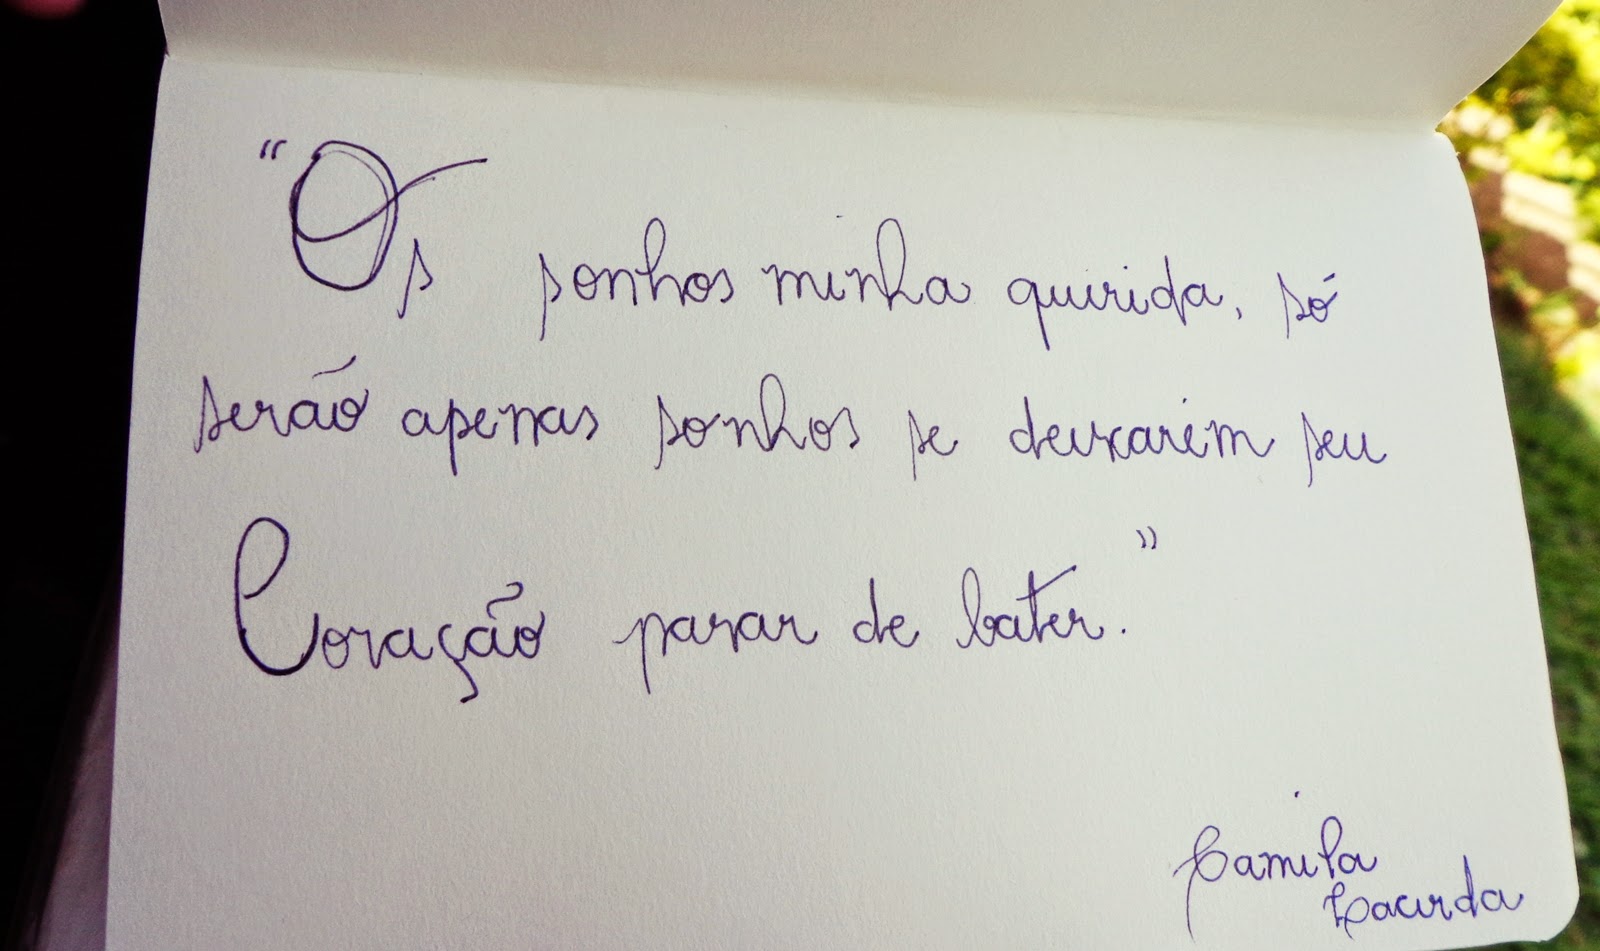 "Os sonhos minha querida, só
serão apenas sonhos se deixarem seu
Coração parar de bater."
Camila
Lacerda